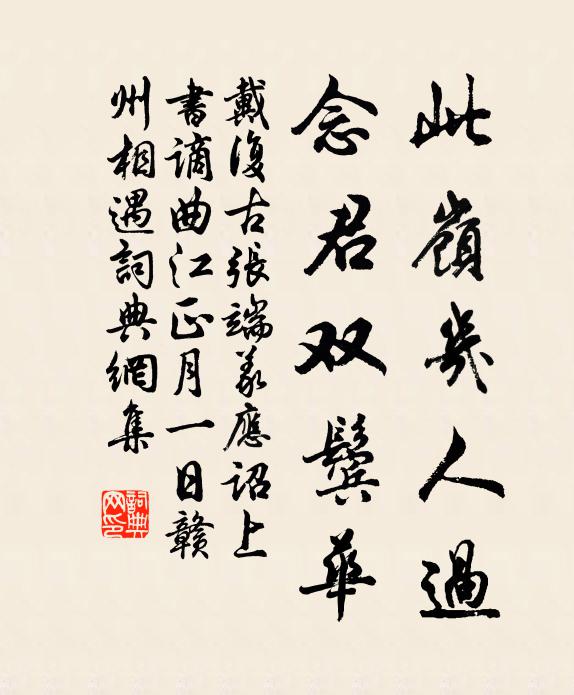 此嶺幾人過
念君双鬓華
戴復古張端義應詔上
書謫曲江正月一日贛
州相遇詞典網集
詞典
网印